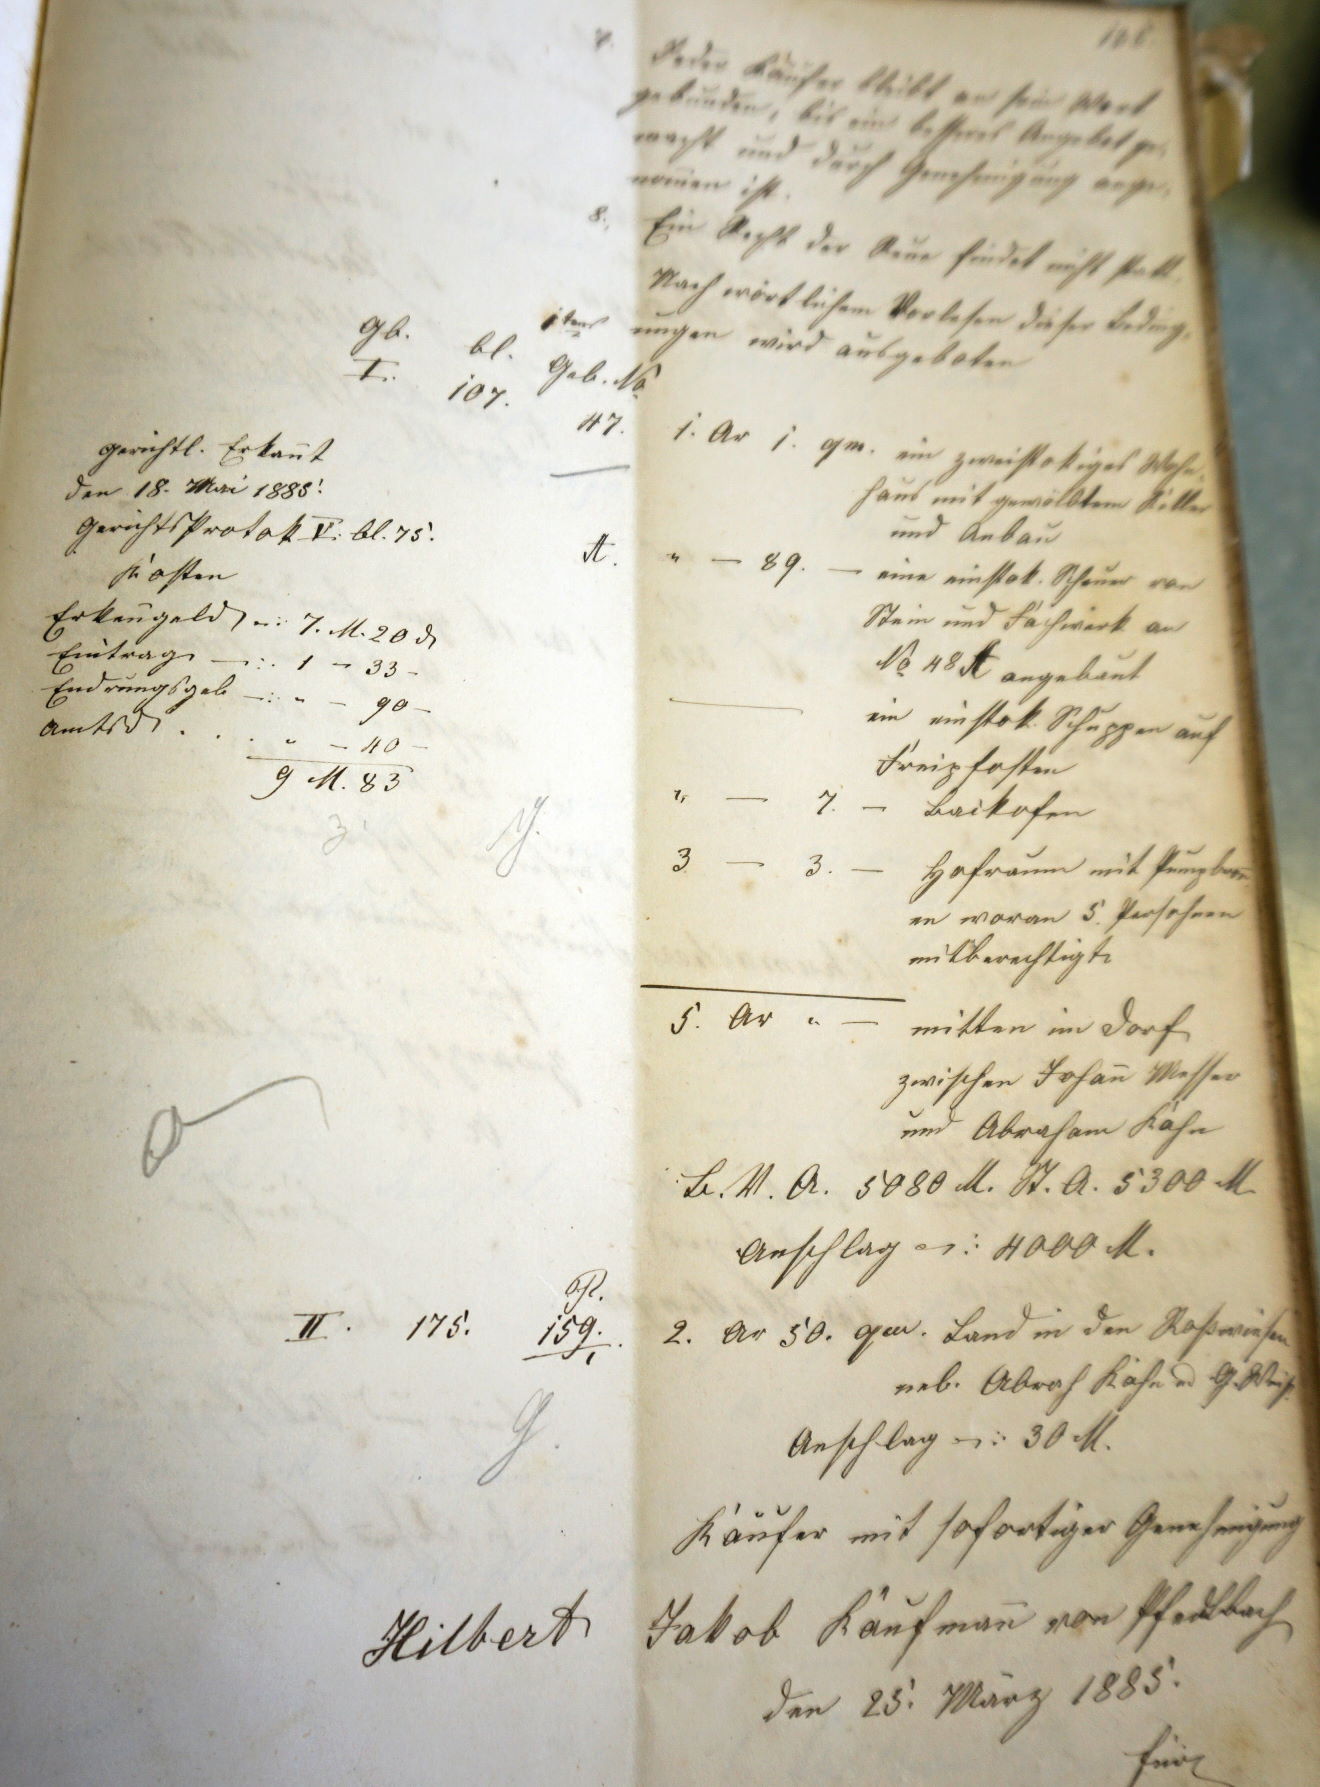 166.
7. Jeder Käufer bleibt an sein Wort
gebunden, bis ein besseres Angebot ge-
macht und durch Genehmigung ange-
nom̄en ist.
8., Ein Recht der Reue findet nicht statt.
Nach wörtlichem Vorlesen dieser Beding-
ungen wird ausgeboten
Gb. bl. 1tens Geb. No
I. 107. 47.
1. Ar 1. qm. ein zweistokiges Wohn-
haus mit gewölbtem Keller
und Anbau
A. " — 89. — eine einstok. Scheuer von
Stein und Fachwerk an
No 48 A angebaut
ein einstok. Schuppen auf
Freipfosten
" — 7. — Backofen
3 — 3. — Hofraum mit Pumpbron̄-
en woran 5. Persohnen
mitberechtigt.
5. Ar " — mitten im Dorf
zwischen Johan̄ Messer
und Abraham Kahn
B. V. A. 5080 M. St. A. 5300 M
Anschlag —: 4000 M.
gerichtl. Erkan̄t
den 18. Mai 1885.
GerichtsProtok V. bl. 75.
Kosten
Erken̄geld —: 7. M. 20 d
Eintrag —: 1 — 33 —
Endrungsgeb —: " — 90 —
Amtsd . . . " — 40 —
9 M. 83
II. 175. P. 159. 2. Ar 50. qm. Land in den Roßwiesen
neb. Abrah Kahn
Anschlag —: 30 M.
Käufer mit sofortiger Genehmigung
Hilbert Jakob Kaufman̄ von Pfedelbach
den 25. März 1885.
für